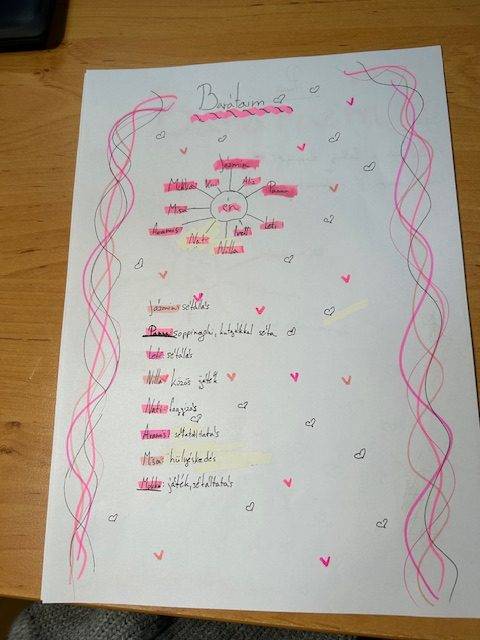 Barátaim
Jázmin
Mokka Aliz
Panna
Misa én
Aramis Leti
Nati
Nilla
Jázmin: sétálás
Panna: soppingolni, kutyákkal séta
Leti: sétálás
Nilla: közös játék
Nati: fagyizás
Aramis: sétáltatás
Misa: hülyéskedés
Mokka: játék, sétáltatás